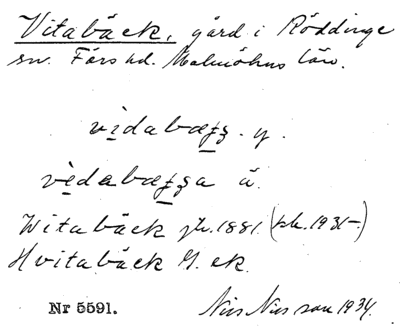 Vitabäck, gård i Röddinge
sn. Färs hd. Malmöhus län.
y.
ä.
Witabäck jb. 1881. (1931-)
Hvitabäck G. ek.
Nr 5591. Nils Nilsson 1934.